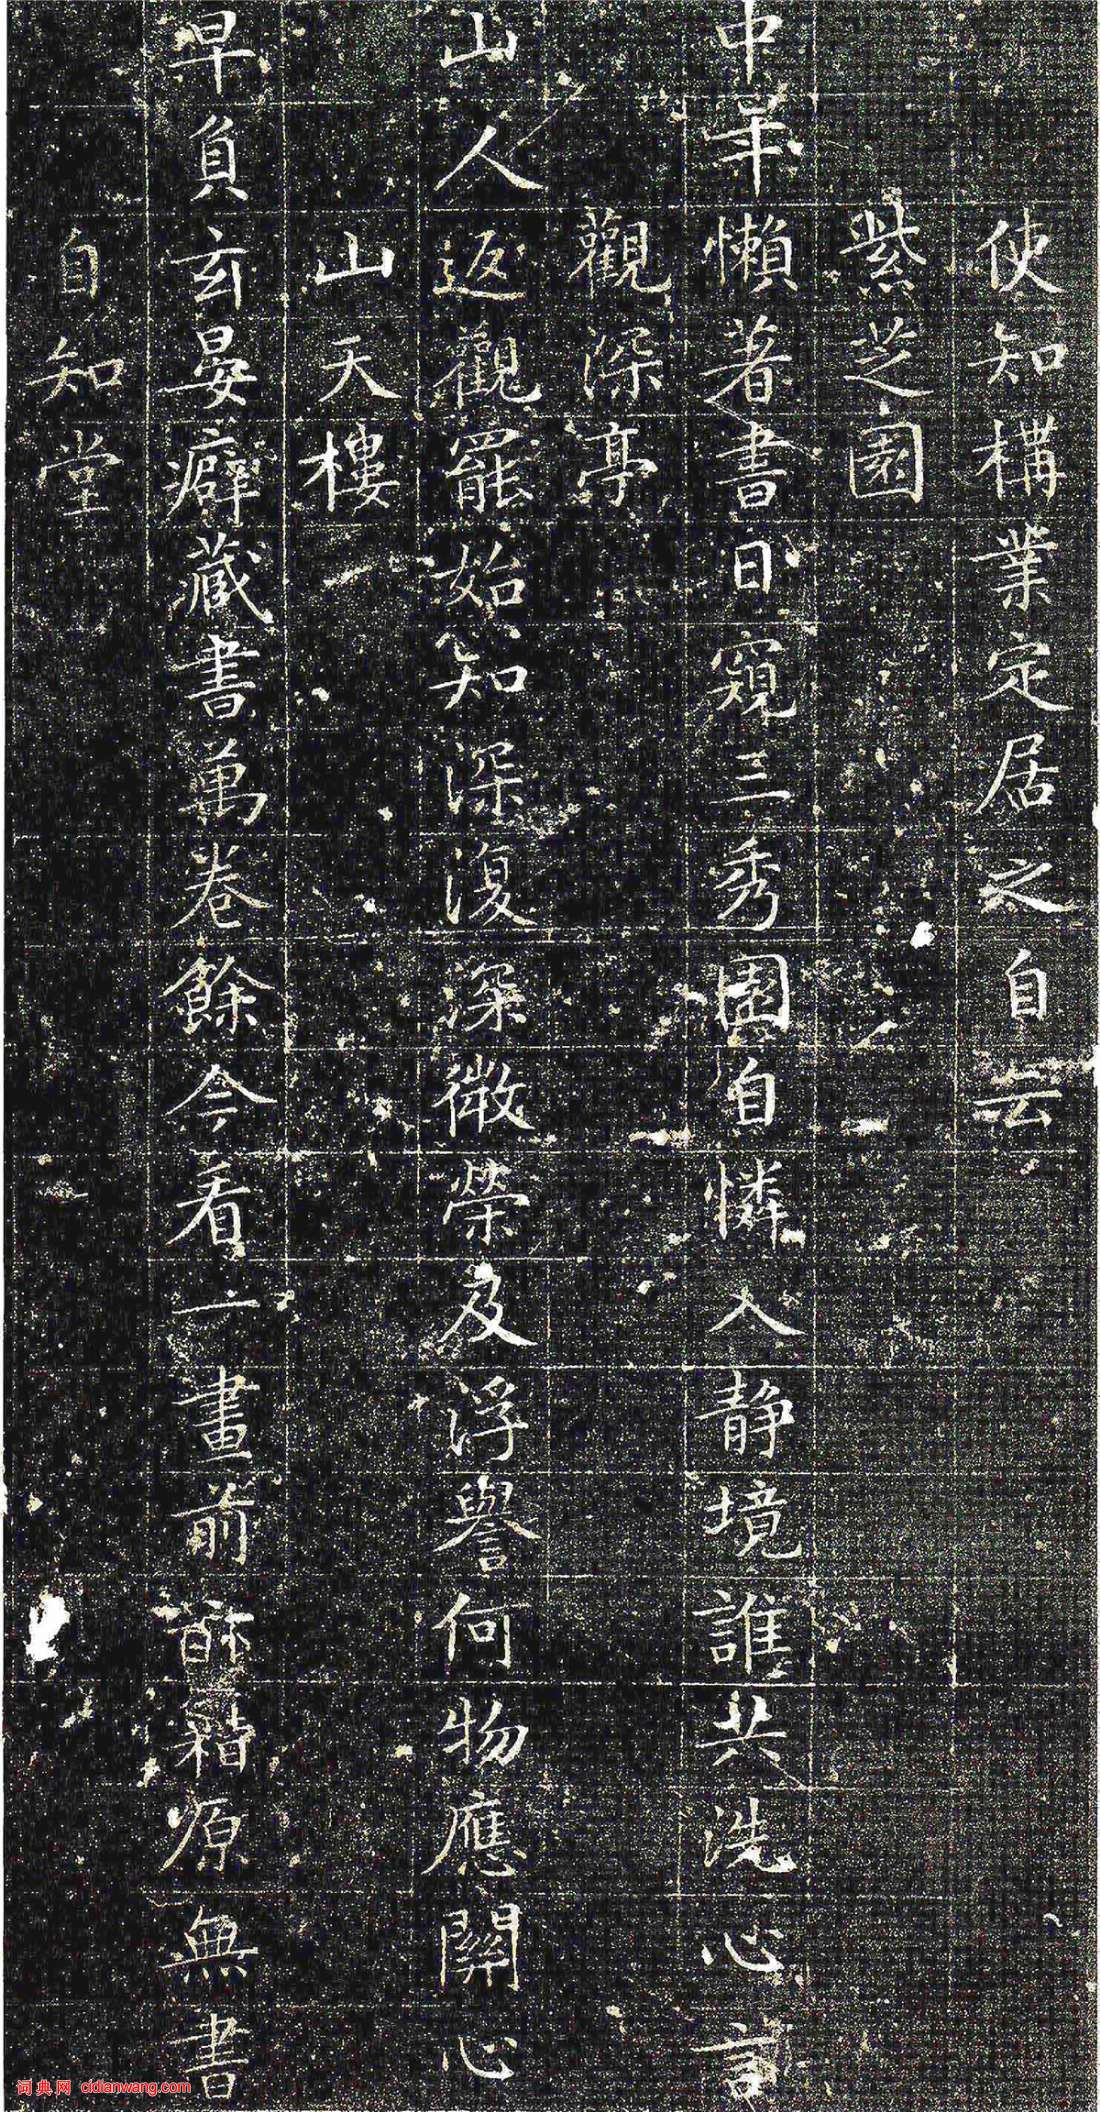 使知構業定居之自云
紫芝園
中年懶著書日窺三秀園自憐入靜境誰共洗心言
觀深亭
山人返觀罷始知深復深微榮及浮譽何物應關心
山天樓
早負玄晏癖藏書萬卷餘今看一畫前 原無書
自知堂
词典网 cidianwang.com